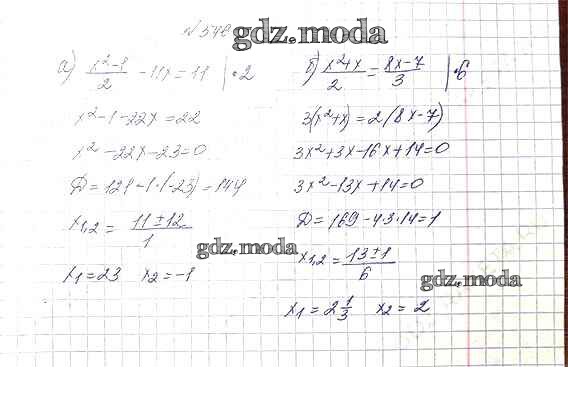 № 546
gdz.moda
а) x²-1/2 - 11x = 11 | •2
x² - 1 - 22x = 22
x² - 22x - 23 = 0
D = 121 - 1•(-23) = 144
x₁,₂ = 11 ± 12/1
gdz.moda
x₁ = 23 x₂ = -1
б) x²+x/2 = 8x-7/3 | •6
3(x²+x) = 2(8x-7)
3x²+3x-16x+14=0
3x²-13x+14=0
D = 169 - 4•3•14 = 1
x₁,₂ = 13 ± 1/6
gdz.moda
x₁ = 2 1/3 x₂ = 2